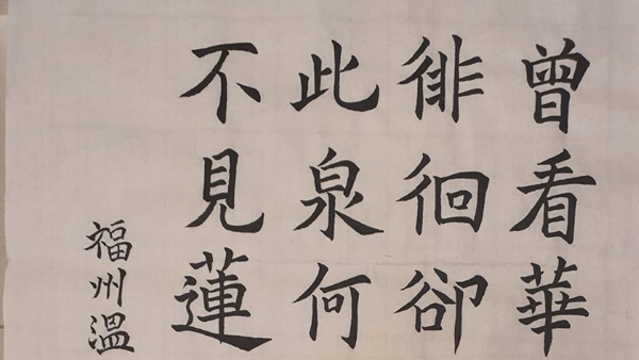 曾看華
徘徊卻
此泉何
不見蓮
福州溫